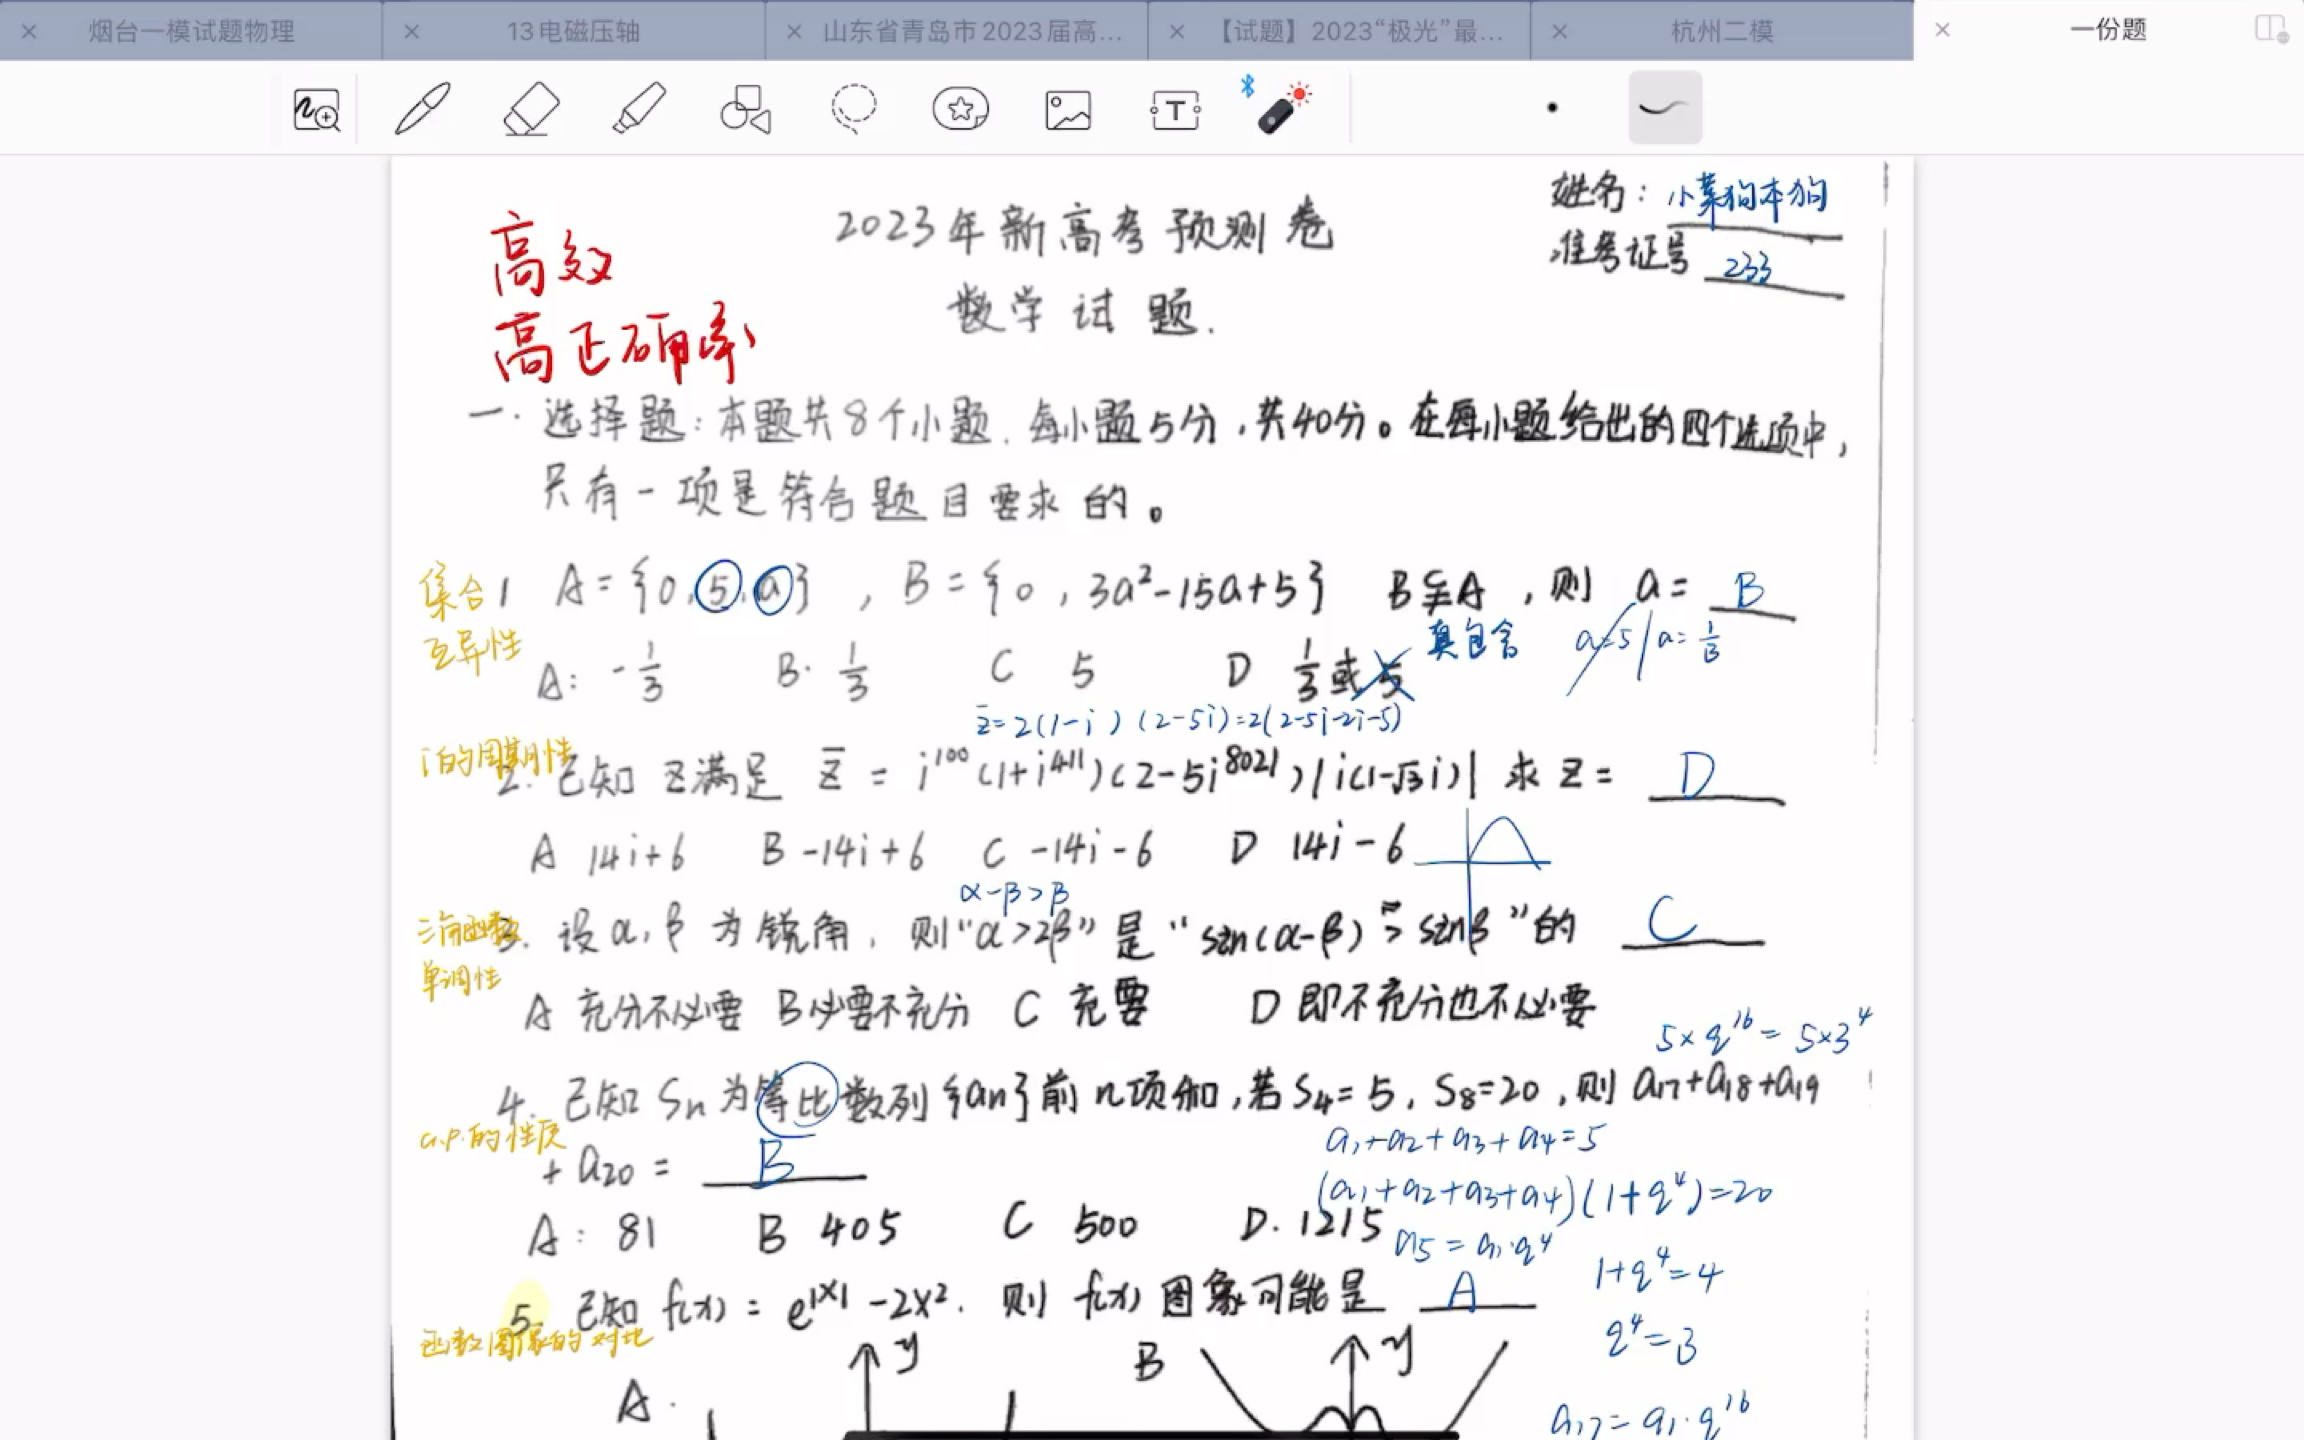 烟台一模试题物理
13电磁压轴
山东省青岛市2023届高...
【试题】2023“极光”最...
杭州二模
一份题
T
姓名：小菜狗本狗
准考证号 233
高效
高正确率
2023年新高考预测卷
数学试题.
一. 选择题：本题共8个小题. 每小题5分，共40分。在每小题给出的四个选项中，
只有一项是符合题目要求的。
集合
互异性
1 A={0,5,a} ，B={0，3a²-15a+5} B⫋A ，则 a= B
真包含 a=5 / a=1/3
A: -1/3 B. 1/3 C 5 D 1/3或5
z̄=2(1-i)(2-5i)=2(2-5i-2i-5)
i的周期性
2. 已知 z满足 z̄ = i¹⁰⁰(1+i⁴¹¹)(2-5i⁸⁰²¹)|i(1-√3i)| 求 z = D
A 14i+6 B -14i+6 C -14i-6 D 14i-6
α-β>β
三角函数
单调性
3. 设α,β 为锐角，则“α>2β”是“sin(α-β)>sinβ”的 C
A 充分不必要 B 必要不充分 C 充要 D 即不充分也不必要
5×q¹⁶=5×3⁴
4. 已知 Sn为等比数列{an}前n项和，若S4=5，S8=20，则 a17+a18+a19
G.P.的性质
+a20 = B
a1+a2+a3+a4=5
(a1+a2+a3+a4)(1+q⁴)=20
A: 81 B 405 C 500 D. 1215
a5=a1·q⁴
1+q⁴=4
q⁴=3
a17=a1·q¹⁶
5. 已知 f(x) = e^|x| -2x². 则 f(x)图象可能是 A
函数图象的对比
A. y
B y